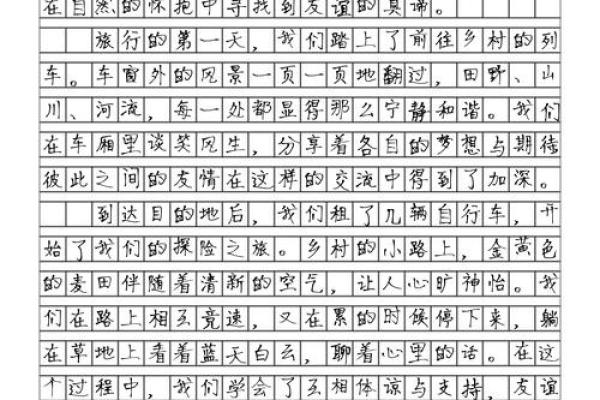 在自然的怀抱中寻找到友谊的真谛。
旅行的第一天，我们踏上了前往乡村的列
车。车窗外的风景一页一页地翻过，田野、山
川、河流，每一处都显得那么宁静和谐。我们
在车厢里谈笑风生，分享着各自的梦想与期待
彼此之间的友情在这样的交流中得到了加深。
到达目的地后，我们租了几辆自行车，开
始了我们的探险之旅。乡村的小路上，金黄色
的麦田伴随着清新的空气，让人心旷神怡。我
们在路上相互竞速，又在累的时候停下来，躺
在草地上看着蓝天白云，聊着心里的话。在这
个过程中，我们学会了互相体谅与支持，友谊